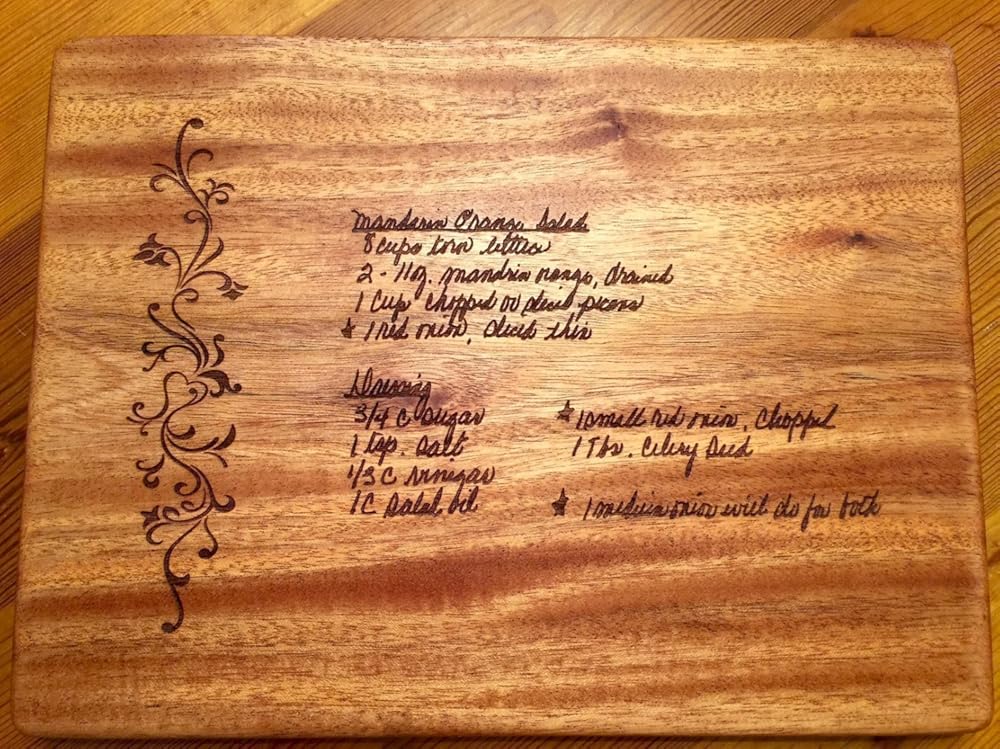 Mandarin Orange Salad
8 cups torn lettuce
2 - 11oz. mandrin orange, drained
1 Cup chopped or diced picans
★ 1 red onion, diced thin
Dressing
3/4 C Sugar
1 tsp. Salt
1/3 C Vinegar
1C Salad oil
★ 1 small red onion, chopped
1 Tbs. Celery Seed
★ 1 medium onion will do for both